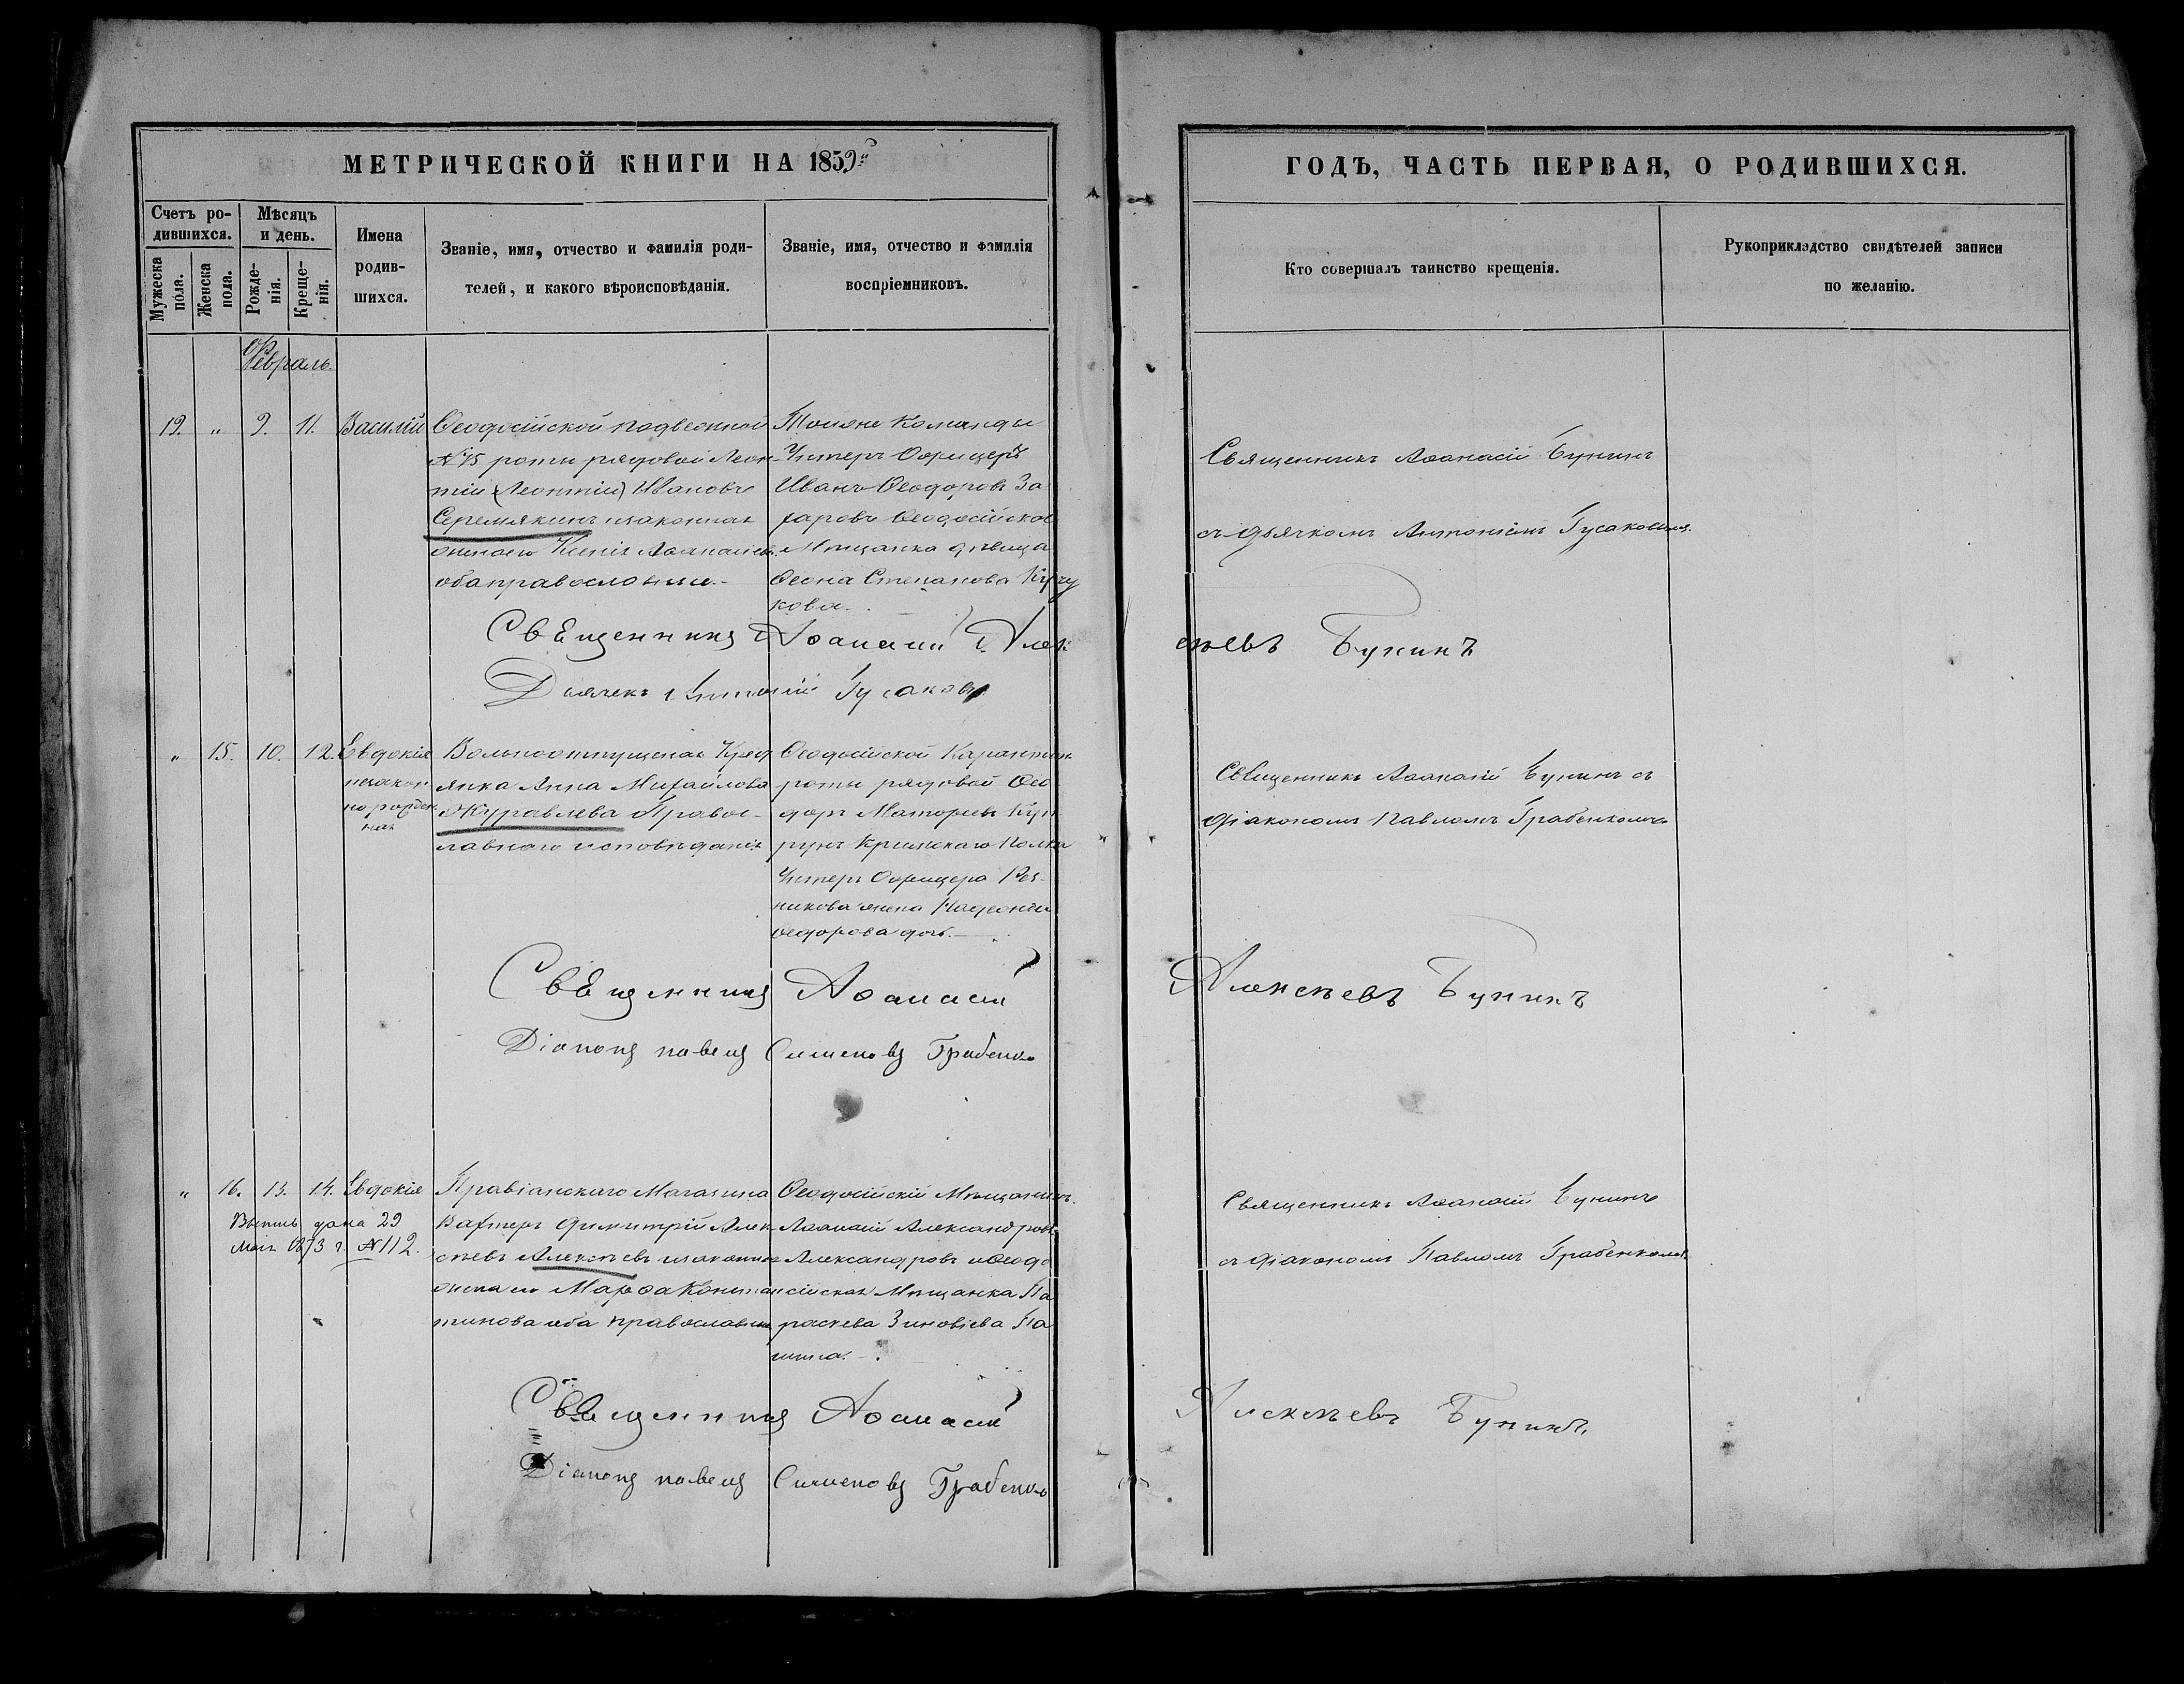 МЕТРИЧЕСКОЙ КНИГИ НА 1859й
ГОДЪ, ЧАСТЬ ПЕРВАЯ, О РОДИВШИХСЯ.
Счетъ ро-
дившихся.
Мужеска
пола.
Женска
пола.
Мѣсяцъ
и день.
Рожде-
нія.
Креще-
нія.
Имена
родив-
шихся.
Званіе, имя, отчество и фамилія роди-
телей, и какого вѣроисповѣданія.
Званіе, имя, отчество и фамилія
воспріемниковъ.
Кто совершалъ таинство крещенія.
Рукоприкладство свидѣтелей записи
по желанію.
Февраль.
19. " 9. 11. Василій
Ѳеодосійской
№ 15 роты рядовой Леон-
тій (Леонтій) Ивановъ
Серемякинъ изаконная
жена его Ксенія
оба православные.-
Тойже Команды
Унтеръ Офицеръ
Иванъ Ѳеодоровъ За
харовъ Ѳеодосійская
Мѣщанка дѣвица
Степанова
кова.
Священникъ Аѳанасій Бунинъ
съ дьячкомъ Антоніемъ Гусаковымъ.
Священникъ Аѳанасій Алек
сѣевъ Бунинъ
Дьячекъ Антоній Гусаковъ
" 15. 10. 12. Евдокія
незакон
но рожден
ная
Вольноотпущеная Крест
янка Анна Михайлова
Журавлева Правос-
лавнаго исповѣданія
Ѳеодосійской Карантин
роты рядовой Ѳео
доръ
Крымскаго Полка
Унтеръ Офицера
никова жена
ѳеодорова дочь.-
Священникъ Аѳанасій Бунинъ съ
діакономъ Павломъ Грабенкомъ
Священникъ Аѳанасій
Алексѣевъ Бунинъ
Діаконъ павелъ Симеоновъ Грабенко
" 16. 13. 14. Евдокія
Выпись дана 29
Маія 1873 г. № 112.
Правіанскаго Магазина
Вахтеръ Димитрій Алек
сѣевъ Алексѣевъ изаконная
жена его Марѳа Констан
тинова оба православные
Ѳеодосійскій Мѣщанинъ
Аѳанасій Александровъ
Александровъ иѲеодо
сійская Мѣщанка Па
раскева Зиновіева
Священникъ Аѳанасій Бунинъ
съ діакономъ Павломъ Грабенкомъ
Священникъ Аѳанасій
Алексѣевъ Бунинъ
Діаконъ павелъ Симеоновъ Грабенко